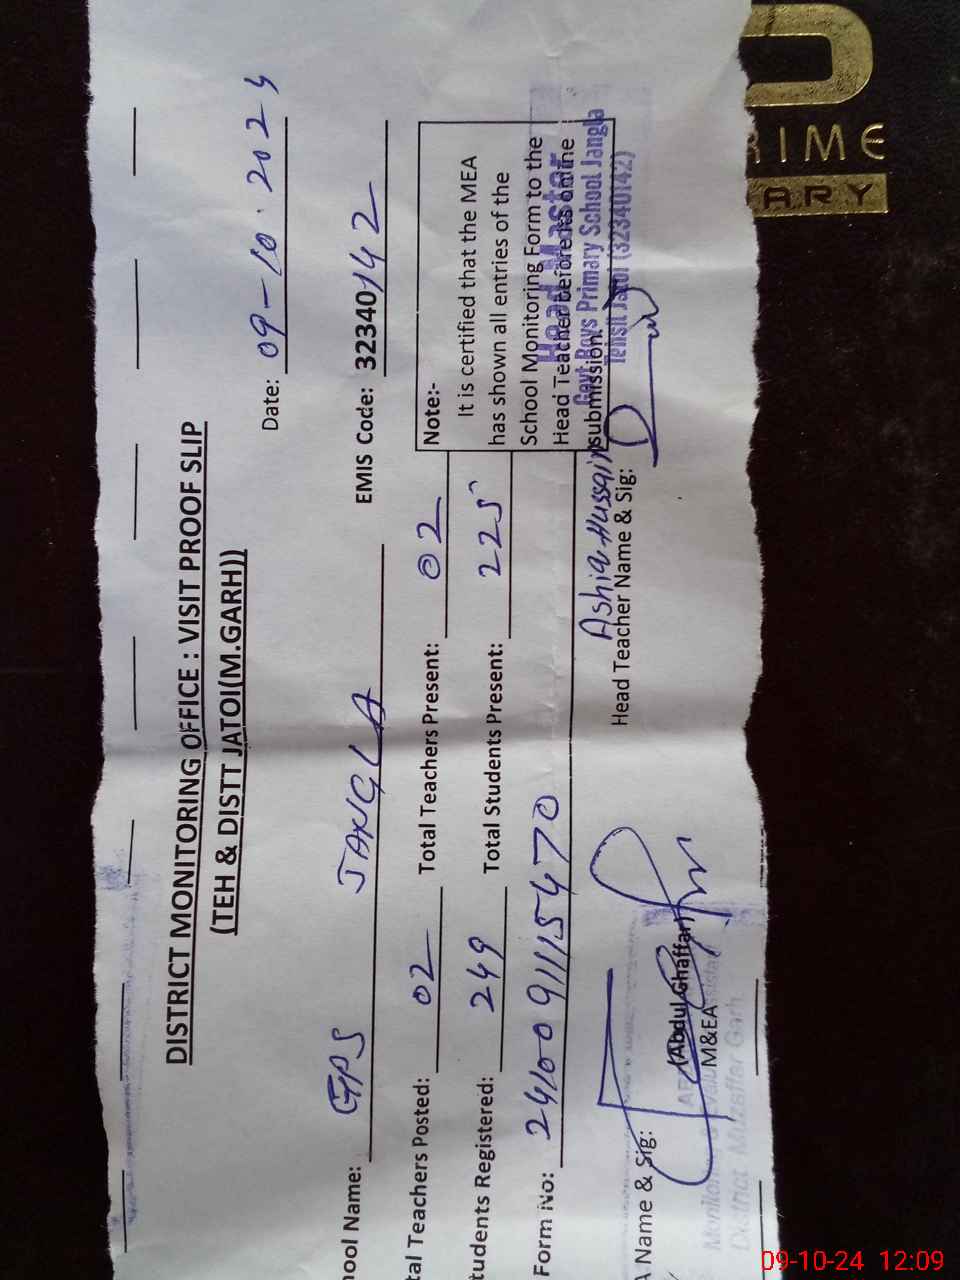 DISTRICT MONITORING OFFICE : VISIT PROOF SLIP
(TEH & DISTT JATOI(M.GARH))
Date: 09-10-2024
hool Name: GPS JANGLA EMIS Code: 32340142
tal Teachers Posted: 02 Total Teachers Present: 02
tudents Registered: 249 Total Students Present: 225
Form No: 2410091115470
Note:-
It is certified that the MEA
has shown all entries of the
School Monitoring Form to the
Head Teacher before its online
submission.
Head Master
Govt Boys Primary School Jangla
Tehsil Jatoi (32340142)
Ashiq Hussain
Head Teacher Name & Sig:
A Name & Sig:
(Abdul Ghaffar)
M&EA
District Muzaffar Garh.
RIME
ARY
09-10-24 12:09